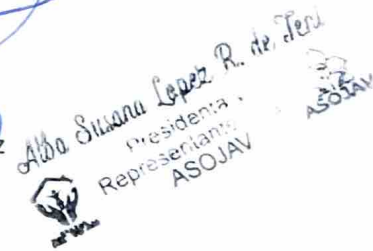 Alba Susana Lopez R. de
Presidenta
Representante
ASOJAV
ASOJAV